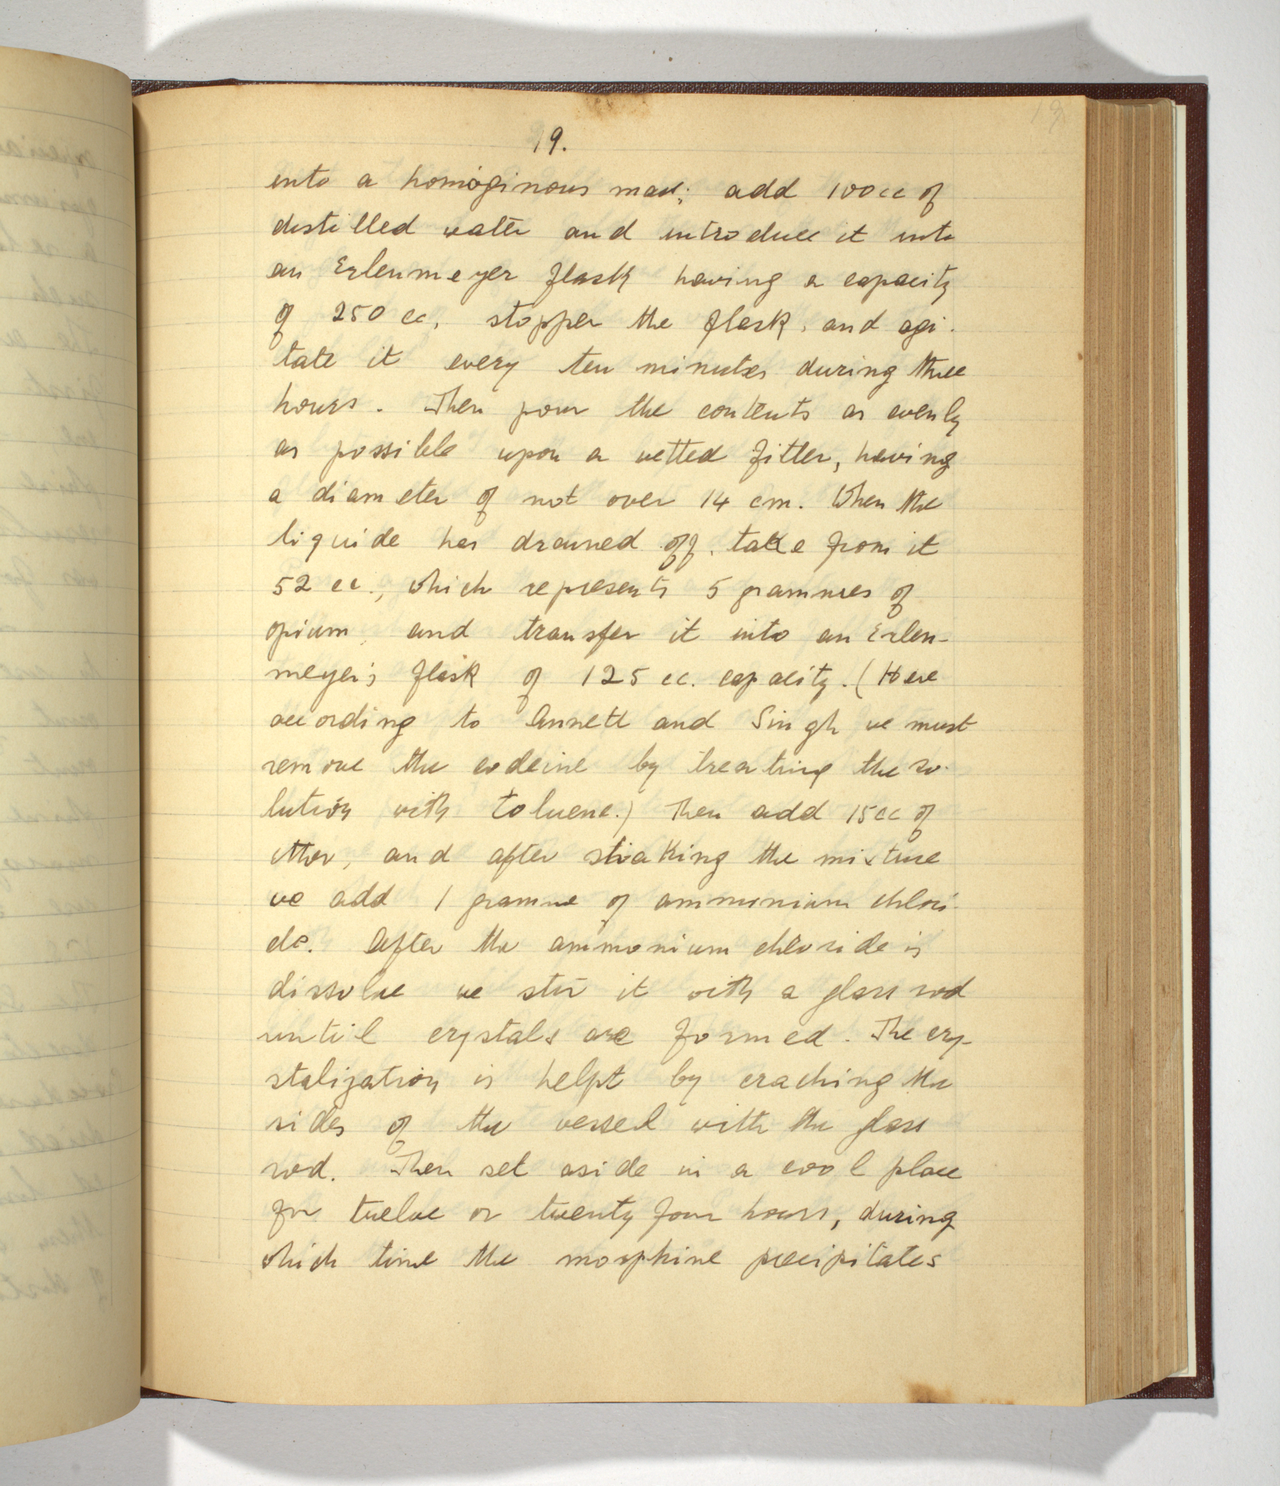 19.
into a homoginous mass; add 100 cc of
distilled water and introduce it into
an Erlenmeyer flask having a capacity
of 250 cc, stopper the flask, and agi-
tate it every ten minutes during three
hours. Then pour the contents as evenly
as possible upon a wetted filter, having
a diameter of not over 14 cm. When the
liquide has drained off, take from it
52 cc., which represents 5 grammes of
opium, and transfer it into an Erlen-
meyer's flask of 125 cc. capacity. (Here
according to Annett and Singh we must
remove the codeine by treating the so-
lution with toluene.) Then add 15 cc of
ether, and after shaking the mixture
we add 1 gramme of ammonium chlori-
de. After the ammonium chloride is
dissolve we stir it with a glass rod
until crystals are formed. The cry-
stalization is helpt by craching the
sides of the vessel with the glass
rod. Then set aside in a cool place
for twelve or twenty four hours, during
which time the morphine precipitates